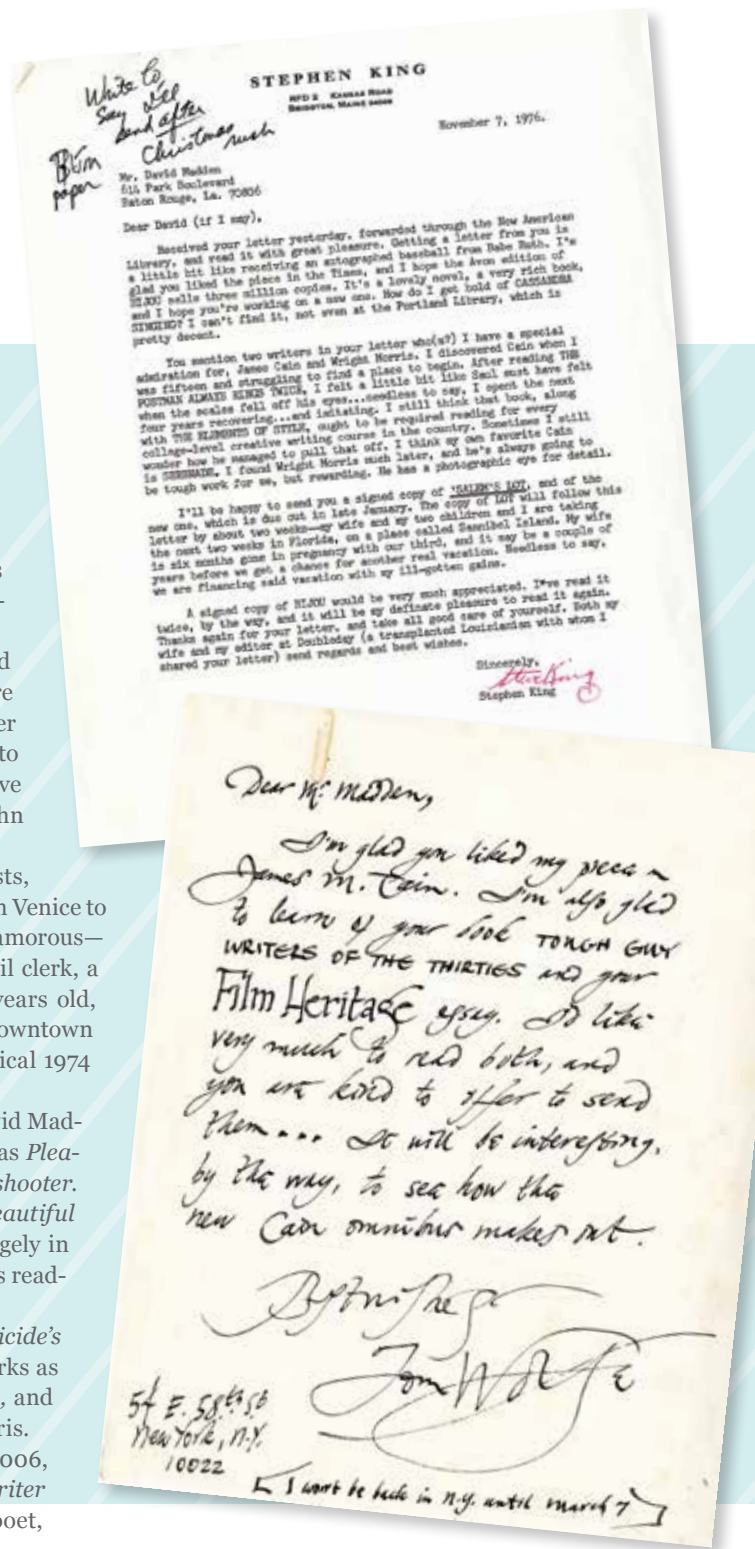 Write to
say I'll
send after
Christmas
rush
paper
STEPHEN KING
RFD 2 KANSAS ROAD
BRIDGTON, MAINE 04009
November 7, 1976.
Mr. David Madden
614 Park Boulevard
Baton Rouge, La. 70806
Dear David (if I may),
Received your letter yesterday, forwarded through the New American
Library, and read it with great pleasure. Getting a letter from you is
a little bit like receiving an autographed baseball from Babe Ruth. I'm
glad you liked the piece in the Times, and I hope the Avon edition of
BIJOU sells three million copies. It's a lovely novel, a very rich book,
and I hope you're working on a new one. How do I get hold of CASSANDRA
SINGING? I can't find it, not even at the Portland Library, which is
pretty decent.
You mention two writers in your letter who(m?) I have a special
admiration for, James Cain and Wright Morris. I discovered Cain when I
was fifteen and struggling to find a place to begin. After reading THE
POSTMAN ALWAYS RINGS TWICE, I felt a little bit like Saul must have felt
when the scales fell off his eyes...needless to say, I spent the next
four years recovering...and imitating. I still think that book, along
with THE ELEMENTS OF STYLE, ought to be required reading for every
college-level creative writing course in the country. Sometimes I still
wonder how he managed to pull that off. I think my own favorite Cain
is SERENADE. I found Wright Morris much later, and he's always going to
be tough work for me, but rewarding. He has a photographic eye for detail.
I'll be happy to send you a signed copy of 'SALEM'S LOT, and of the
new one, which is due out in late January. The copy of LOT will follow this
letter by about two weeks—my wife and my two children and I are taking
the next two weeks in Florida, on a place called Sannibel Island. My wife
is six months gone in pregnancy with our third, and it may be a couple of
years before we get a chance for another real vacation. Needless to say,
we are financing said vacation with my ill-gotten gains.
A signed copy of BIJOU would be very much appreciated. I've read it
twice, by the way, and it will be my definate pleasure to read it again.
Thanks again for your letter, and take all good care of yourself. Both my
wife and my editor at Doubleday (a transplanted Louisianian with whom I
shared your letter) send regards and best wishes.
Sincerely,
Steve King
Stephen King
s
-
d
re
er
to
ve
hn
sts,
n Venice to
amorous—
il clerk, a
years old,
owntown
ical 1974
vid Mad-
as Plea-
shooter.
eautiful
gely in
s read-
icide's
rks as
, and
ris.
006,
riter
poet,
Dear Mr. Madden,
I'm glad you liked my piece on
James M. Cain. I'm also glad
to learn of your book TOUGH GUY
WRITERS OF THE THIRTIES and your
Film Heritage essay. I'd like
very much to read both, and
you are kind to offer to send
them... It will be interesting,
by the way, to see how the
new Cain omnibus makes out.
Best wishes
Tom Wolfe
54 E. 58th St
New York, N.Y.
10022
[I won't be back in N.Y. until March 7]